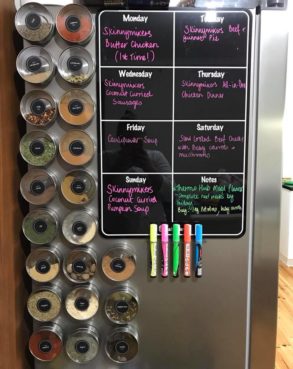 Monday
Skinnymixers
Butter Chicken
(1st Time!)
Tuesday
Skinnymixers Beef +
Guinness Pie
Wednesday
Skinnymixers
Coconut Curried
Sausages
Thursday
Skinnymixers All-in-One
Chicken Dinner
Friday
Cauliflower Soup
Saturday
Slow Cooked Beef Cheeks
with Baby carrots +
mushrooms
Sunday
Skinnymixers
Coconut Curried
Pumpkin Soup
Notes
Thermo Hub Meal Planner
- complete next weeks by
friday!
Buy: Veg, Potatoes, baby carrots